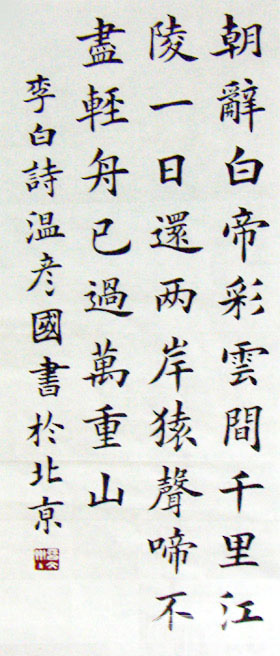 朝辭白帝彩雲間千里江
陵一日還两岸猿聲啼不
盡輕舟已過萬重山
李白詩温彦國書於北京